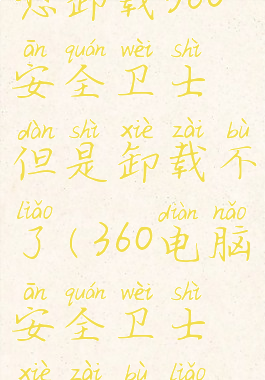 您卸载360
ān quán wèi shì
安全卫士
dàn shì xiè zài bù
但是卸载不
liǎo diàn nǎo
了（360电脑
ān quán wèi shì
安全卫士
xiè zài bù liǎo